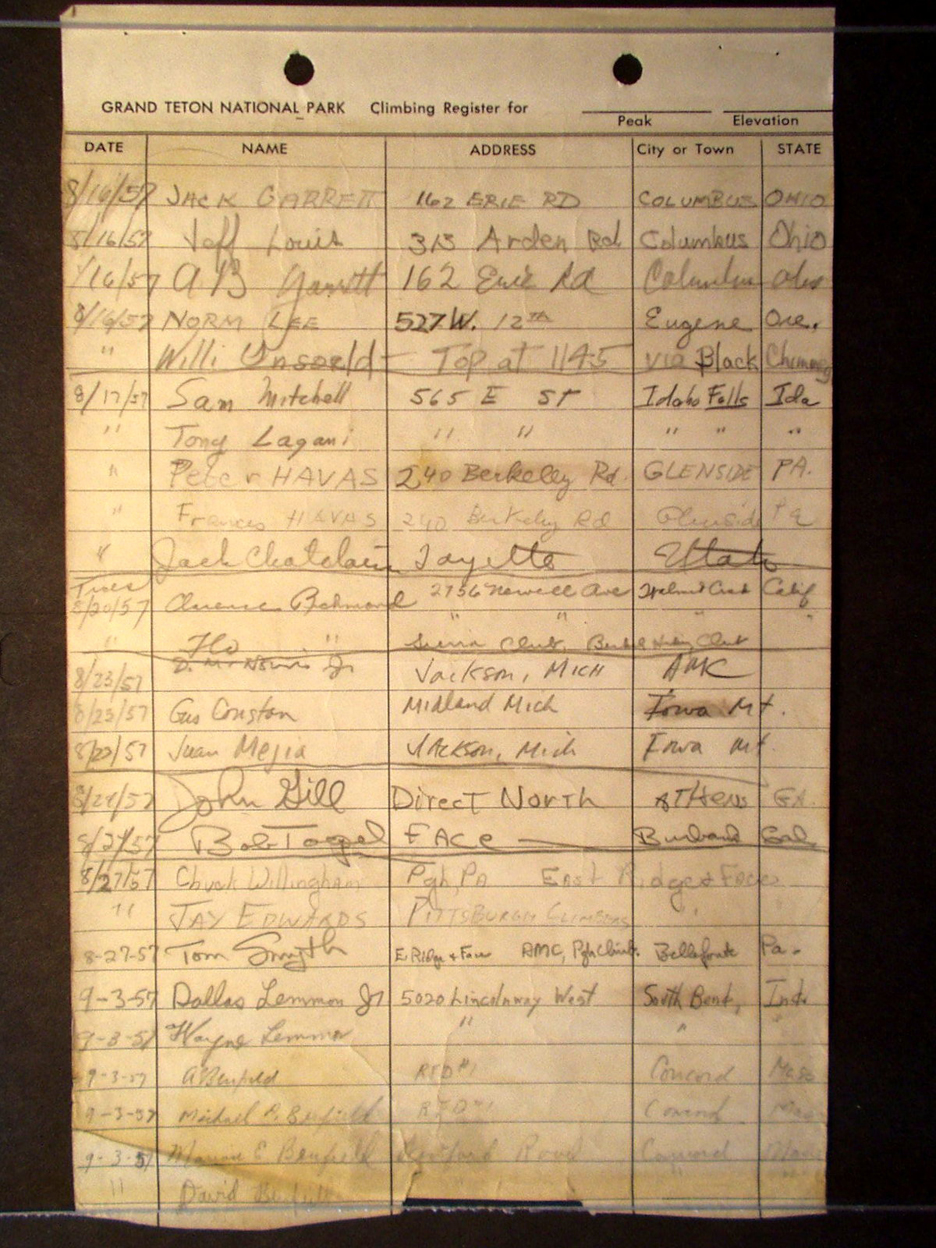 GRAND TETON NATIONAL PARK Climbing Register for
Peak Elevation
DATE NAME ADDRESS City or Town STATE
8/16/57 JACK GARRETT 162 ERIE RD COLUMBUS OHIO
8/16/57 Jeff Louis 313 Arden Rd Columbus Ohio
/16/57 A B Garrett 162 Erie Rd Columbus Ohio
8/16/57 NORM LEE 527 W. 12TH Eugene Ore.
" Willi Unsoeld - Top at 1145 via Black Chimney
8/17/57 Sam Mitchell 565 E ST Idaho Falls Ida
" Tony Lagani " " " " "
" Peter HAVAS 240 Berkeley Rd. GLENSIDE PA.
" Frances HAVAS 240 Berkeley Rd Glenside Pa
" Jack Chatelain Utah
Tues
8/20/57 Clarence 2756 Newell Ave Walnut Creek Calif
" Flo " Sierra Club, Club
8/23/57 Jr Jackson, MICH AMK
8/23/57 Gus Midland Mich Iowa Mt.
8/23/57 Juan Mejia JAckson, Mich Iowa Mt
8/27/57 John Gill Direct North ATHens GA.
8/27/57 Bob FACe Burbank Cal
8/27/57 Chuck Willingham Pgh, PA EAST Ridge & Face
" JAY EDWARDS PITTSBURGH CLIMBERS "
8-27-57 Tom Smyth E Ridge & Face AMC, Pgh Climb. Bellefonte Pa.
9-3-57 Dallas Lemmon Jr 5020 Lincolnway West South Bend, Ind.
9-3-57 Wayne Lemmon " " "
9-3-57 A Benfield RFD #1 Concord Mass
9-3-57 Michael Benfield RFD #1 Concord Mass
9-3-57 E Benfield Road Concord Mass
" David Benfield